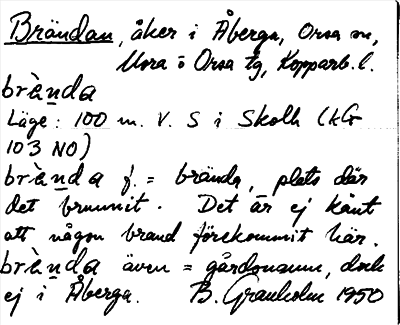 Brändan, åker i Åberga, Orsa sn,
Mora o Orsa tg, Kopparb. l.
brènda
Läge: 100 m. V. S i Skolh (kG
103 NO)
brènda f. = brända, plats där
det brunnit. Det är ej känt
att någon brand förekommit här.
brènda även = gårdsnamn, dock
ej i Åberga. B. Granholm 1950